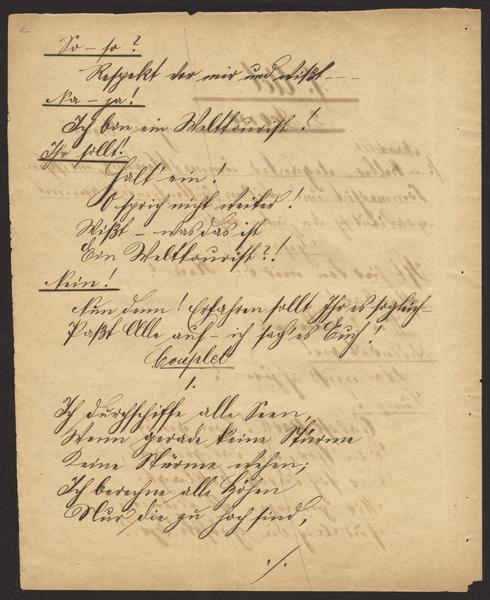 So – so?
Respekt vor mir und wißt - - -
Na – ja!
Ich bin ein Welttourist!
Ihr sollt!
Halt' ein!
O sprich nicht weiter!
Wißt – was das ist
Ein Welttourist?!
Nein!
Nun denn! Erfahren sollt Ihr es sogleich –
Paßt Alle auf – ich sag's Euch!
Couplet
1.
Ich durchschiffe alle Seen,
Wenn gerade keine Stürme
Keine Stürme wehen;
Ich berechne alle Höhen
Nur die zu hoch sind,
./.